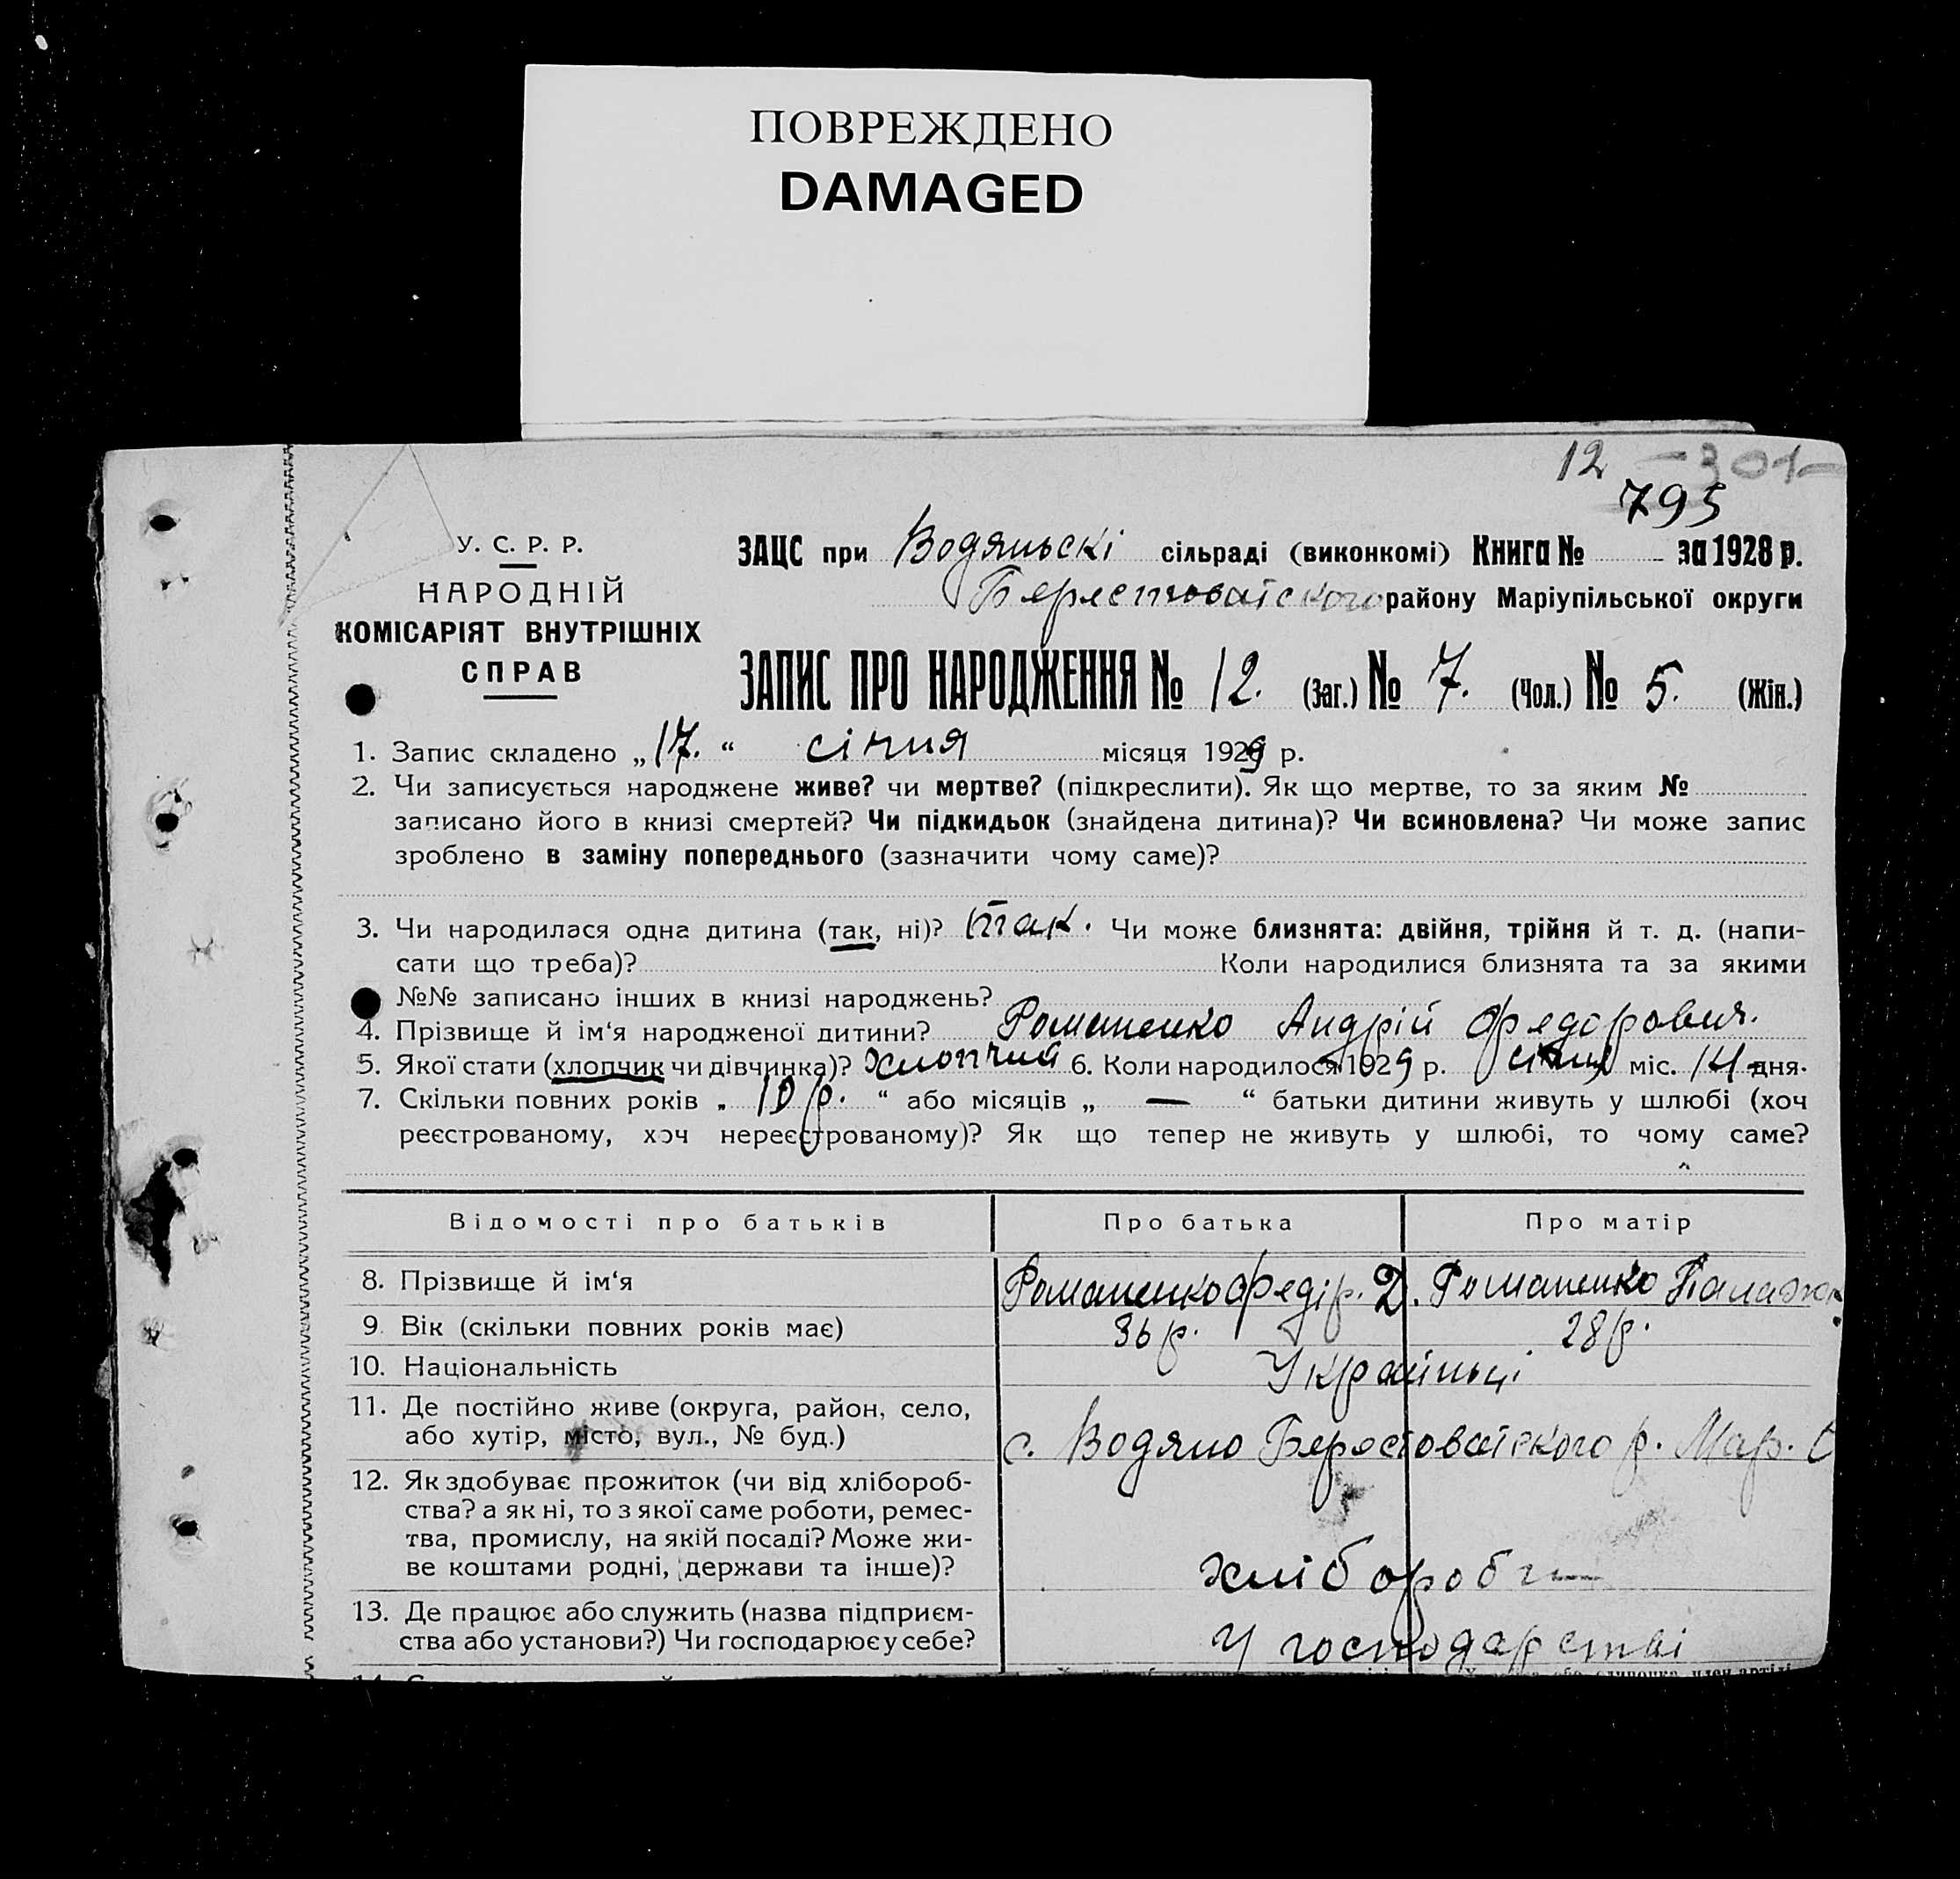 ПОВРЕЖДЕНО
DAMAGED
12 -301-
795
У. С. Р. Р.
НАРОДНІЙ
КОМІСАРІЯТ ВНУТРІШНІХ
СПРАВ
ЗАЦС при Водяньскі сільраді (виконкомі) Книга № за 1928 р.
Берестоваїського району Маріупільської округи
ЗАПИС ПРО НАРОДЖЕННЯ № 12. (Заг.) № 7. (Чол.) № 5. (Жін.)
1. Запис складено „17.“ січня місяця 1929 р.
2. Чи записується народжене живе? чи мертве? (підкреслити). Як що мертве, то за яким №
записано його в книзі смертей? Чи підкидьок (знайдена дитина)? Чи всиновлена? Чи може запис
зроблено в заміну попереднього (зазначити чому саме)?
3. Чи народилася одна дитина (так, ні)? так. Чи може близнята: двійня, трійня й т. д. (напи-
сати що треба)? Коли народилися близнята та за якими
№№ записано інших в книзі народжень?
4. Прізвище й ім‘я народженої дитини? Романенко Андрій Федорович.
5. Якої стати (хлопчик чи дівчинка)? 6. Коли народилося 1929 р. січня міс. 14 дня.
7. Скільки повних років „ 10 р. “ або місяців „ — “ батьки дитини живуть у шлюбі (хоч
реєстрованому, хоч нереєстрованому)? Як що тепер не живуть у шлюбі, то чому саме?
Відомості про батьків Про батька Про матір
8. Прізвище й ім‘я Романенко Федір. Д. Романенко Палажк
9. Вік (скільки повних років має) 36 р. 28 р.
10. Національність Українці
11. Де постійно живе (округа, район, село,
або хутір, місто, вул., № буд.) с. Водяно Берестоваїского р. Мар. О
12. Як здобуває прожиток (чи від хлібороб-
ства? а як ні, то з якої саме роботи, ремес-
тва, промислу, на якій посаді? Може жи-
ве коштами родні, держави та інше)? хлібороби
13. Де працює або служить (назва підприєм-
ства або установи?) Чи господарює у себе? у господарстві